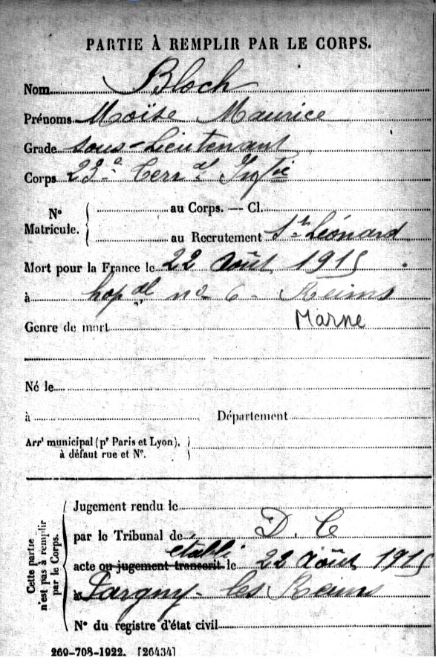 PARTIE À REMPLIR PAR LE CORPS.
Nom Bloch
Prénoms Moïse Maurice
Grade sous-Lieutenant
Corps 23e Terr al Infie
N° Matricule. { au Corps. — Cl.
au Recrutement St Léonard
Mort pour la France le 22 Août 1915
à hop al no 6 - Reims
Marne
Genre de mort
Né le
à Département
Arrt municipal (pr Paris et Lyon), à défaut rue et N°.
Cette partie n'est pas à remplir par le Corps.
Jugement rendu le
par le Tribunal de D. C
etabli
acte ou jugement transcrit le 22 Août 1915
à Pargny-les Reims
N° du registre d'état civil
269-708-1922. [26434]